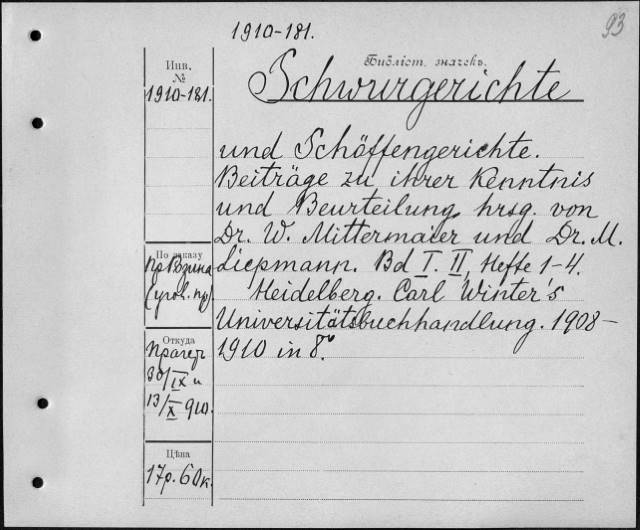 1910-181.
93
Библіот. значекъ.
Инв.
№
1910-181.
Schwurgerichte
und Schöffengerichte.
Beiträge zu ihrer Kenntnis
und Beurteilung, hrsg. von
Dr. W. Mittermaier und Dr. M.
Liepmann. Bd I. II, Hefte 1-4.
Heidelberg. Carl Winter's
Universitätsbuchhandlung. 1908-
1910 in 8°
По заказу
Пр
Откуда
30/IX и
13/X 910.
Цѣна
17р. 60к.